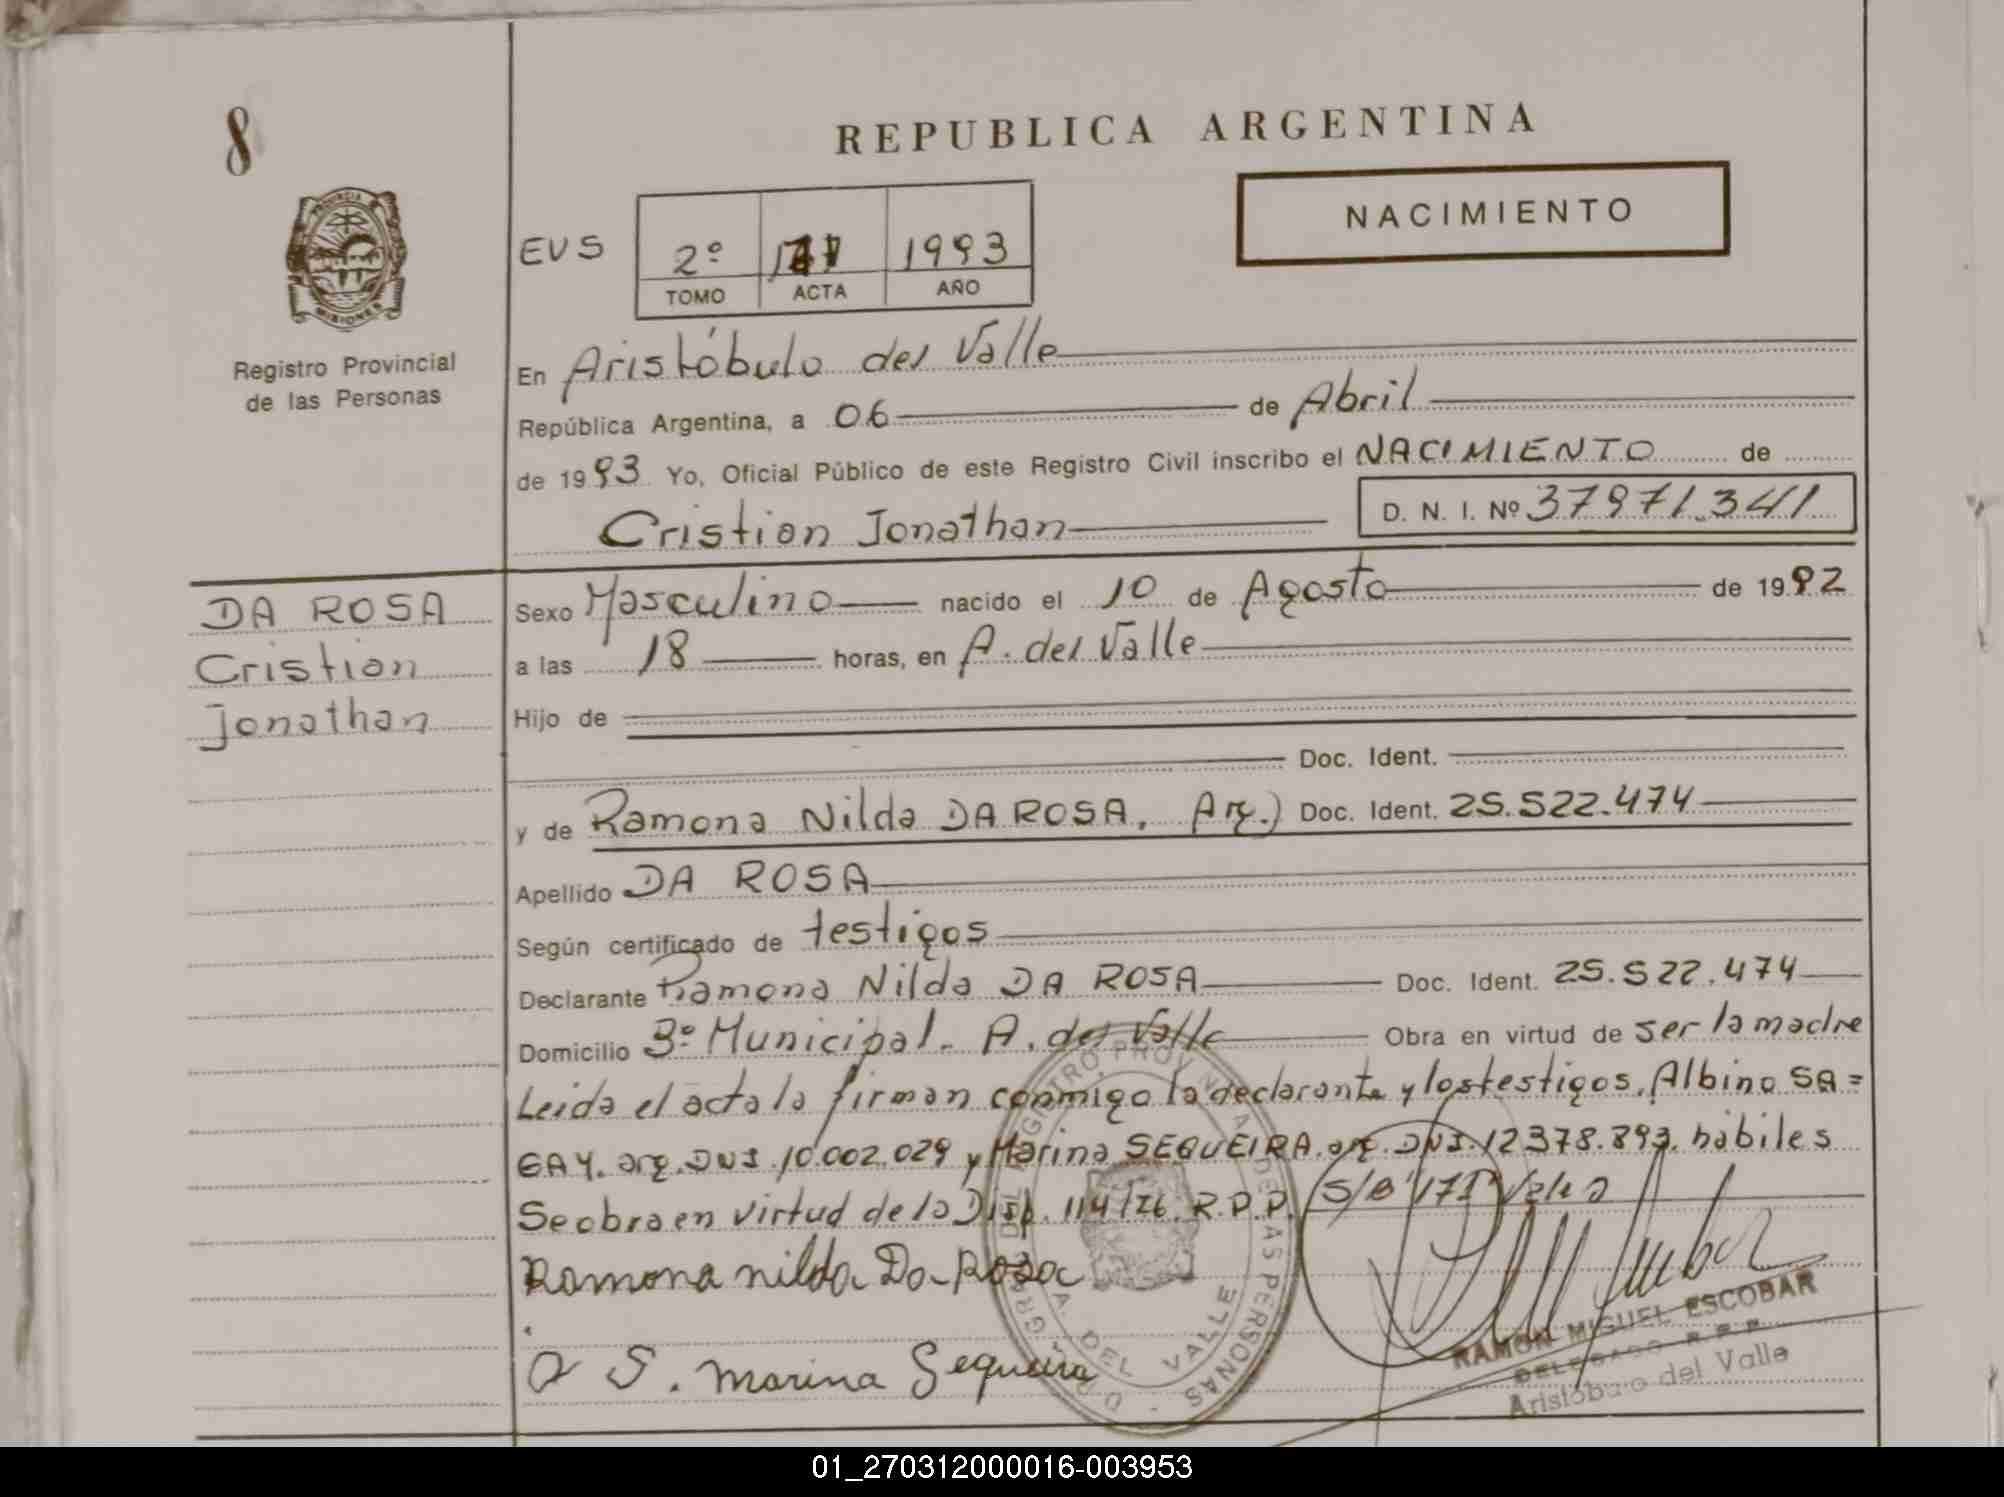 8
REPUBLICA ARGENTINA
NACIMIENTO
PROVINCIA
MISIONES
EVS 2º 1993
TOMO ACTA AÑO
Registro Provincial
de las Personas
En Aristóbulo del Valle
República Argentina, a 06 de Abril
de 1993 Yo, Oficial Público de este Registro Civil inscribo el NACIMIENTO de
Cristian Jonathan D. N. I. Nº 37971.341
DA ROSA
Cristian
Jonathan
Sexo Masculino nacido el 10 de Agosto de 1992
a las 18 horas, en A. del Valle
Hijo de
Doc. Ident.
y de Ramona Nilda DA ROSA, Arg.) Doc. Ident. 25.522.474
Apellido DA ROSA
Según certificado de testigos
Declarante Ramona Nilda DA ROSA Doc. Ident. 25.522.474
Domicilio Bº Municipal. A. del Valle Obra en virtud de ser la madre
Leida el acta la firman conmigo la declarante y los testigos. Albino SA=
GAY. arg. DNI. 10.002.029 y Marina SEQUEIRA. arg. DNI. 12378.893. hábiles
Se obra en virtud de la Disp. 114/76. R.P.P. S/B "171" Vale
Ramona nilda Da Rosa
a S. marina Sequeira
REGISTRO PROVINCIAL DE LAS PERSONAS
A. DEL VALLE
RAMON MIGUEL ESCOBAR
DELEGADO R.P.P.
Aristóbulo del Valle
01_270312000016-003953